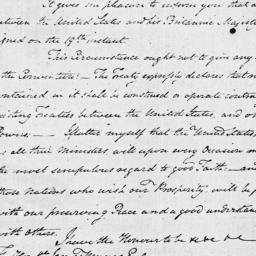 It gives me pleasure to inform you that a
between the United States and his Britannic Majesty
signed on the 19th instant.
This Circumstance ought not to give any
the Convention: The Treaty expressly declares that no
contained in it shall be construed or operate contra
Treaties between the United States, and o
I flatter myself that the United States,
as all their ministers, will upon every Occasion m
the most scrupulous regard to good Faith: and
those Nations who wish our Prosperity, will be p
with our preserving Peace and a good understan
with others.
I have the Honour to be &c &c &c